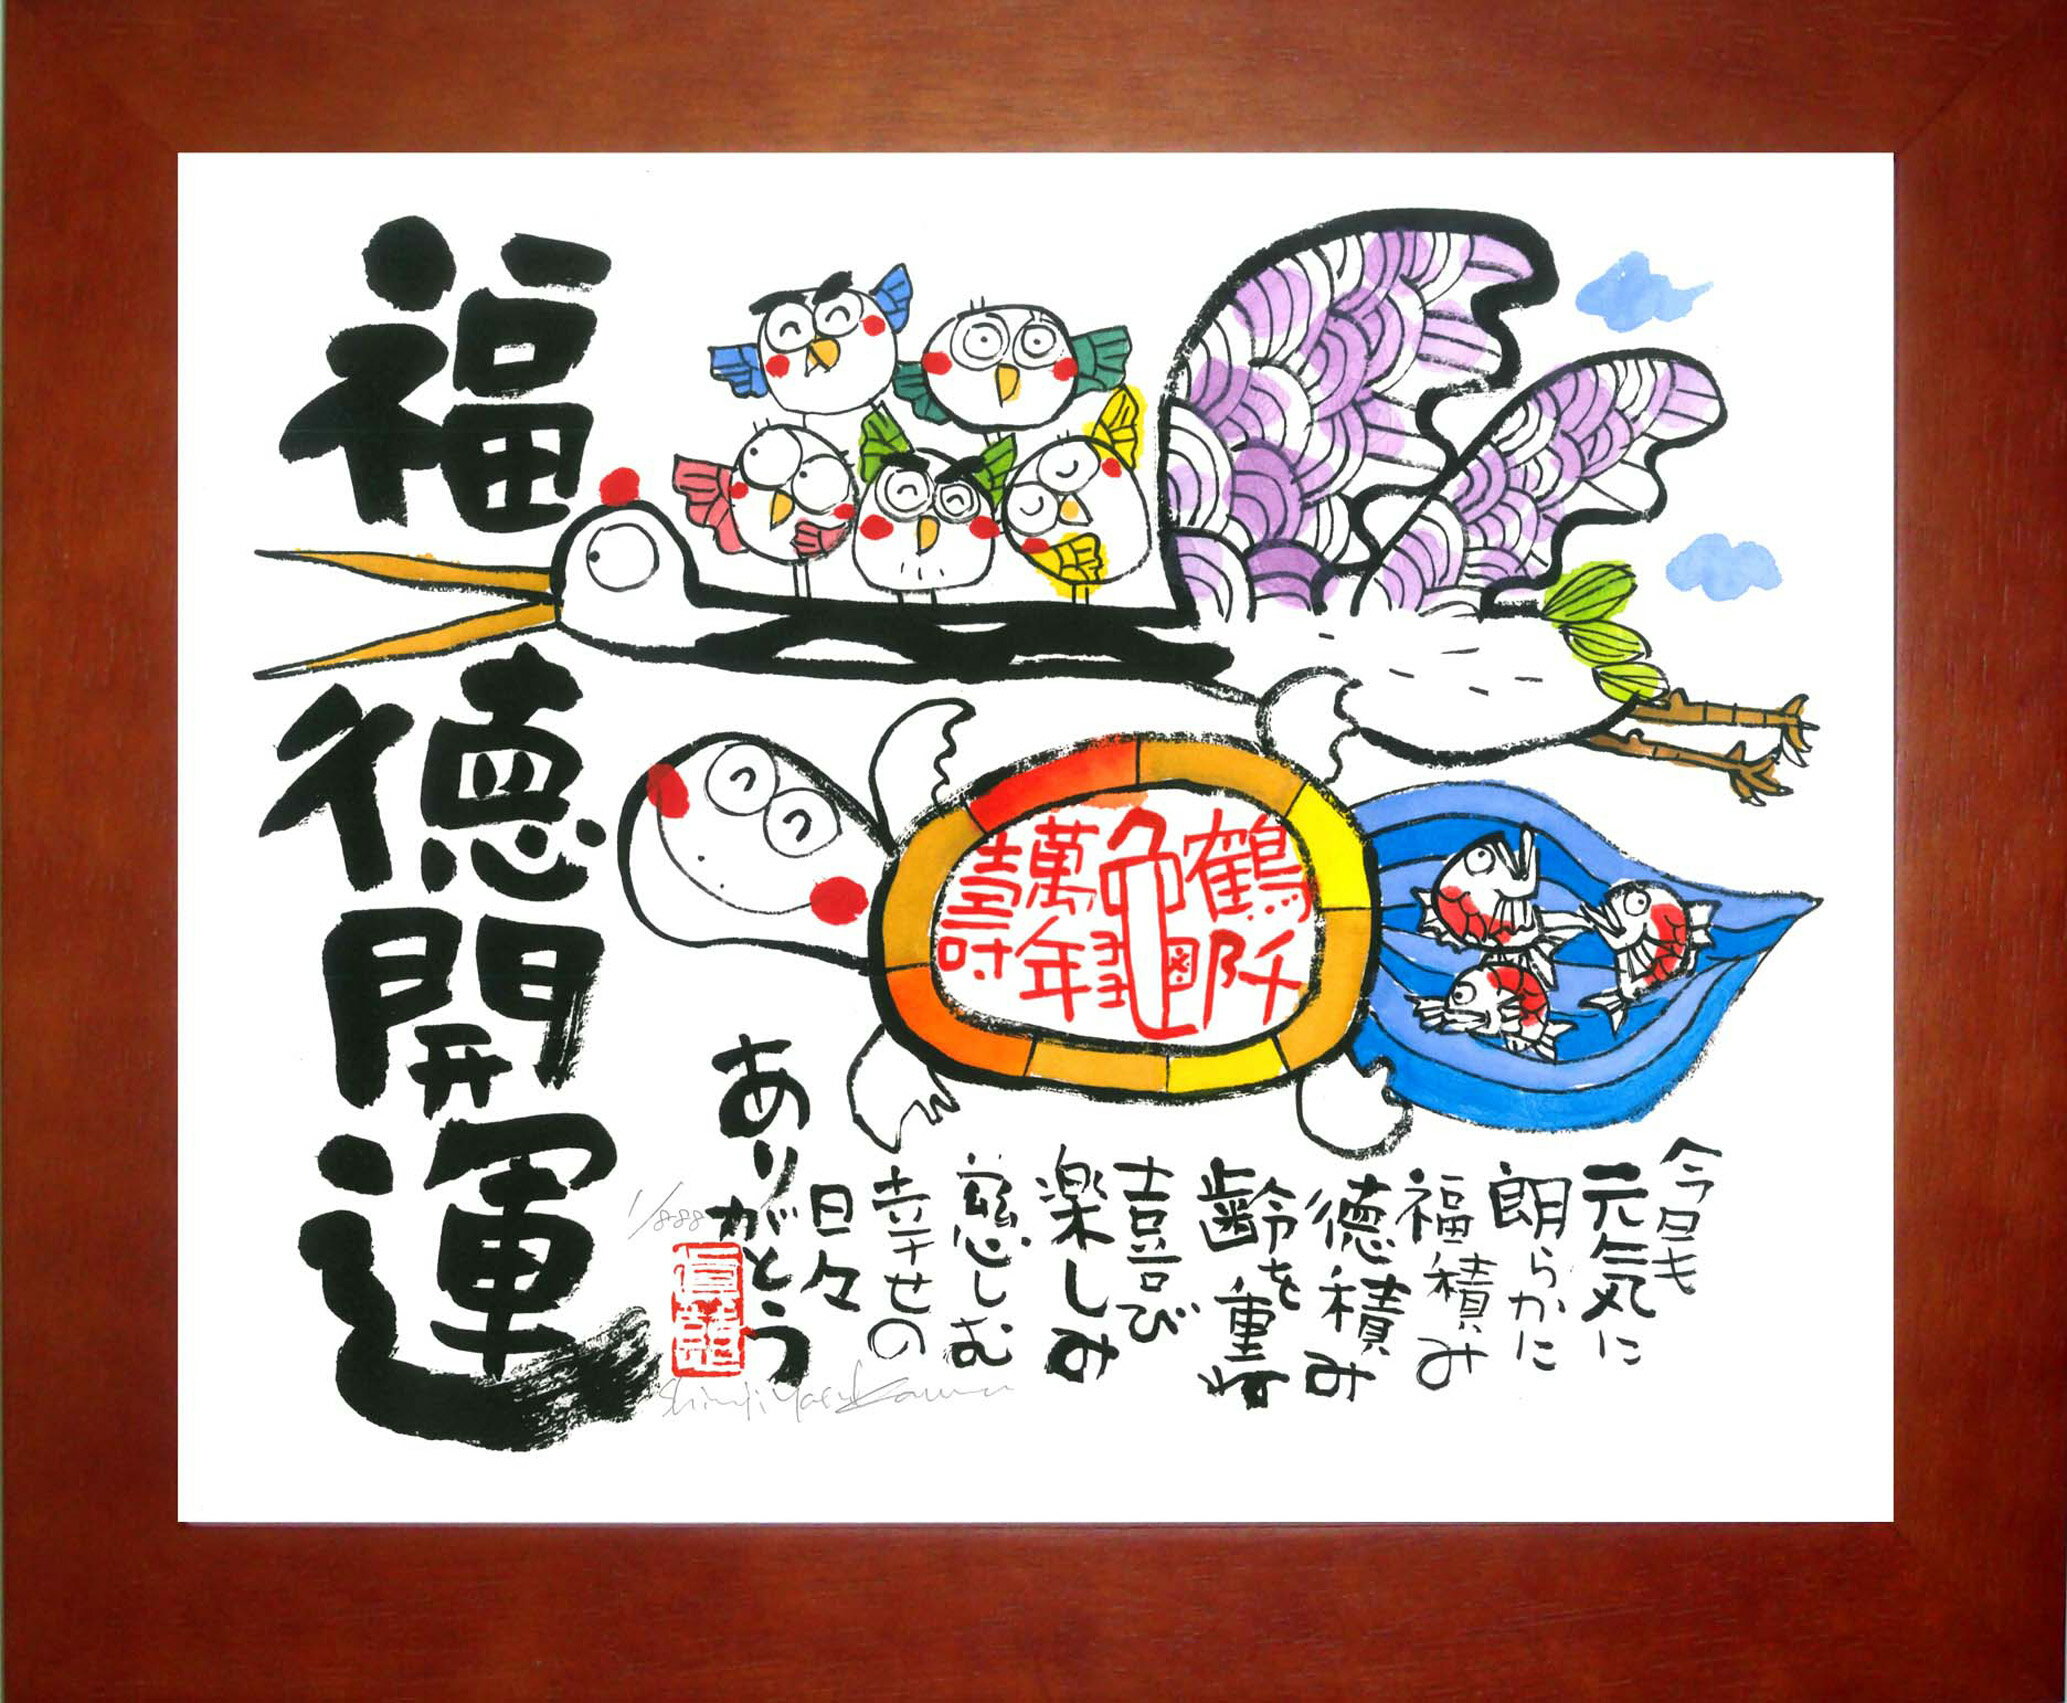 福徳開運
鶴
阡
亀龜
萬年
壽
今日も
元気に
朗らかに
福積み
徳積み
齢を重ね
喜び
楽しみ
慈しむ
幸せの
日々
ありがとう
1/888